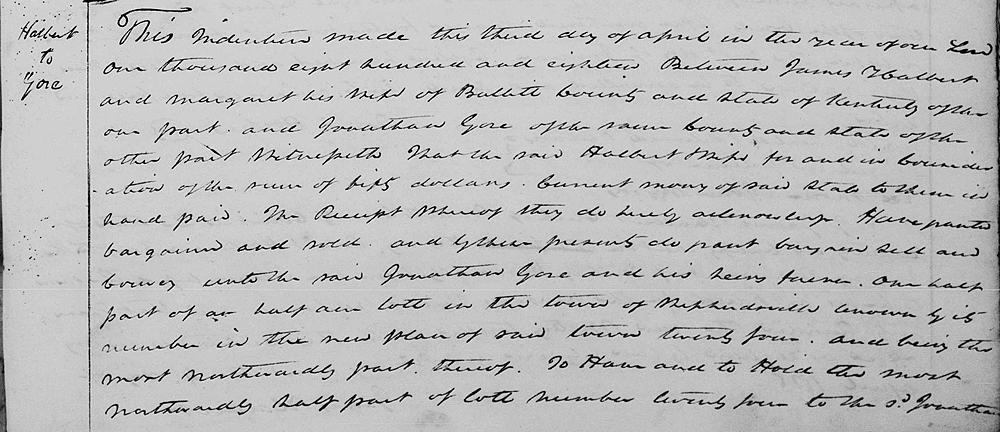 Halbert
to
Gore
This Indenture made this third day of April in the year of our Lord
One thousand eight hundred and eighteen Between James Halbert
and Margaret his Wife of Bullitt County and State of Kentucky of the
one part. and Jonathan Gore of the same County and State of the
other part Witnesseth That the said Halbert & Wife for and in Consider
-ation of the sum of fifty dollars. Current money of said State to them in
hand paid. The Receipt Whereof they do hereby acknowledge. Have granted
bargained and sold. and by these presents do grant bargain Sell and
Convey unto the said Jonathan Gore and his heirs forever. One half
part of an half acre lott in the town of Shepherdsville known by its
number in the new plan of said town twenty four. and being the
most Northwardly part. thereof. To Have and to Hold the most
Northwardly half part of lott number twenty four to the sd. Jonathan